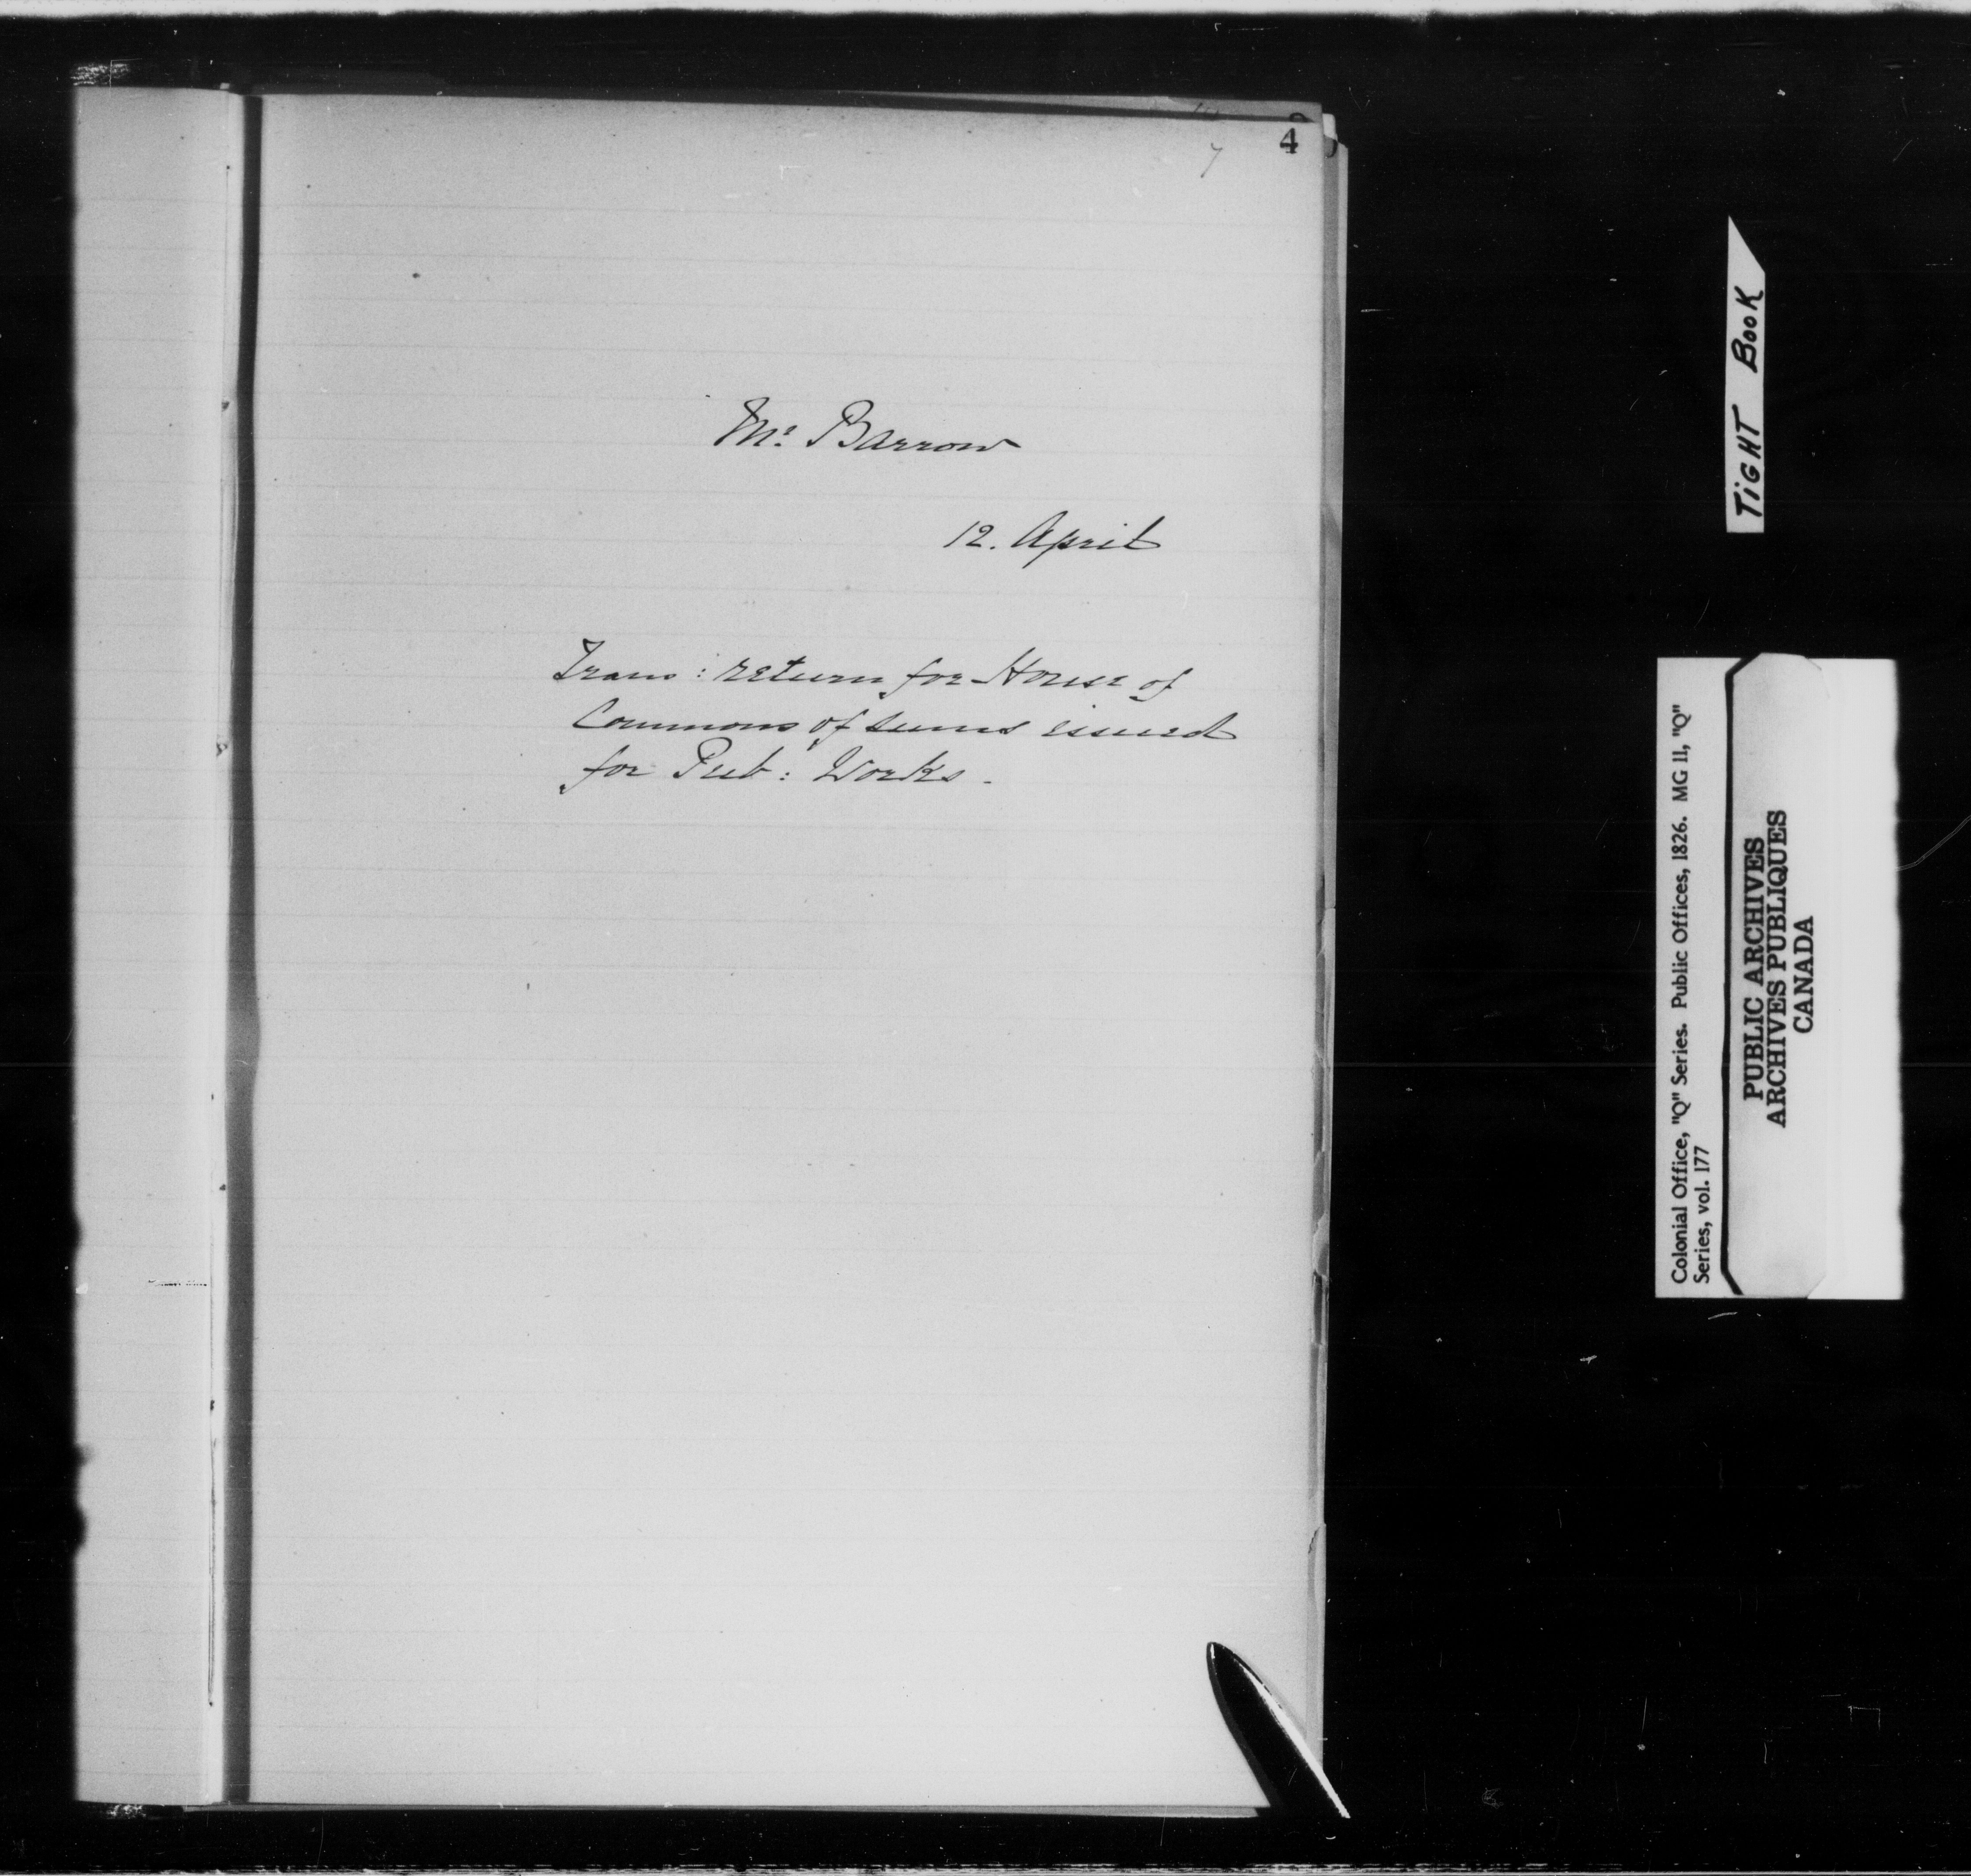 4
7
Mr. Barrow
12. April
Trans: return for House of
Commons of sums issued
for Pub: Works.
TIGHT BOOK
Colonial Office, "Q" Series. Public Offices, 1826. MG 11, "Q"
Series, vol. 177
PUBLIC ARCHIVES
ARCHIVES PUBLIQUES
CANADA